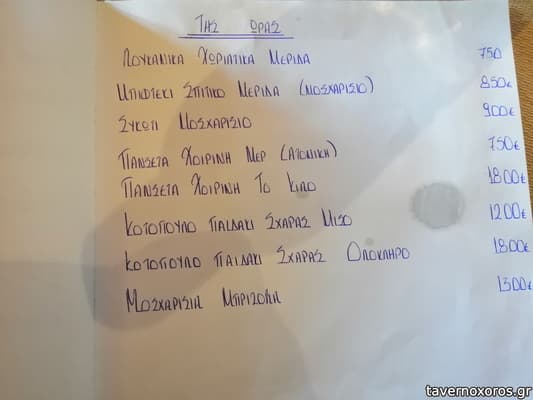 ΤΗΣ ΩΡΑΣ
ΛΟΥΚΑΝΙΚΑ ΧΩΡΙΑΤΙΚΑ ΜΕΡΙΔΑ 750
ΜΠΙΦΤΕΚΙ ΣΠΙΤΙΚΟ ΜΕΡΙΔΑ (ΜΟΣΧΑΡΙΣΙΟ) 850€
ΣΥΚΩΤΙ ΜΟΣΧΑΡΙΣΙΟ 900€
ΠΑΝΣΕΤΑ ΧΟΙΡΙΝΗ ΜΕΡ (ΑΤΟΜΙΚΗ) 750€
ΠΑΝΣΕΤΑ ΧΟΙΡΙΝΗ ΤΟ ΚΙΛΟ 1800€
ΚΟΤΟΠΟΥΛΟ ΠΑΙΔΑΚΙ ΣΧΑΡΑΣ ΜΙΣΟ 1200€
ΚΟΤΟΠΟΥΛΟ ΠΑΙΔΑΚΙ ΣΧΑΡΑΣ ΟΛΟΚΛΗΡΟ 1800€
ΜΟΣΧΑΡΙΣΙΑ ΜΠΡΙΖΟΛΑ 1300€
tavernoxoros.gr